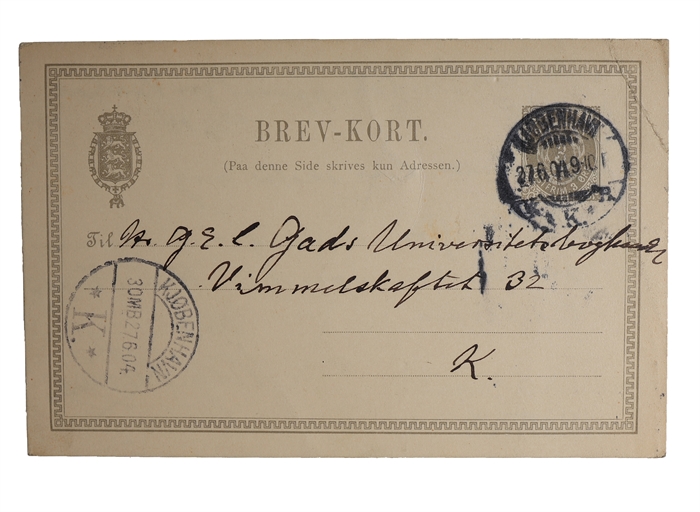 BREV-KORT.
(Paa denne Side skrives kun Adressen.)
KJØBENHAVN
27.6.04.9-10 F
K.
Til Hr. G. E. C. Gads Universitetsboghandl
Vimmelskaftet 32
K.
KJØBENHAVN
30MB27.6.04
K.